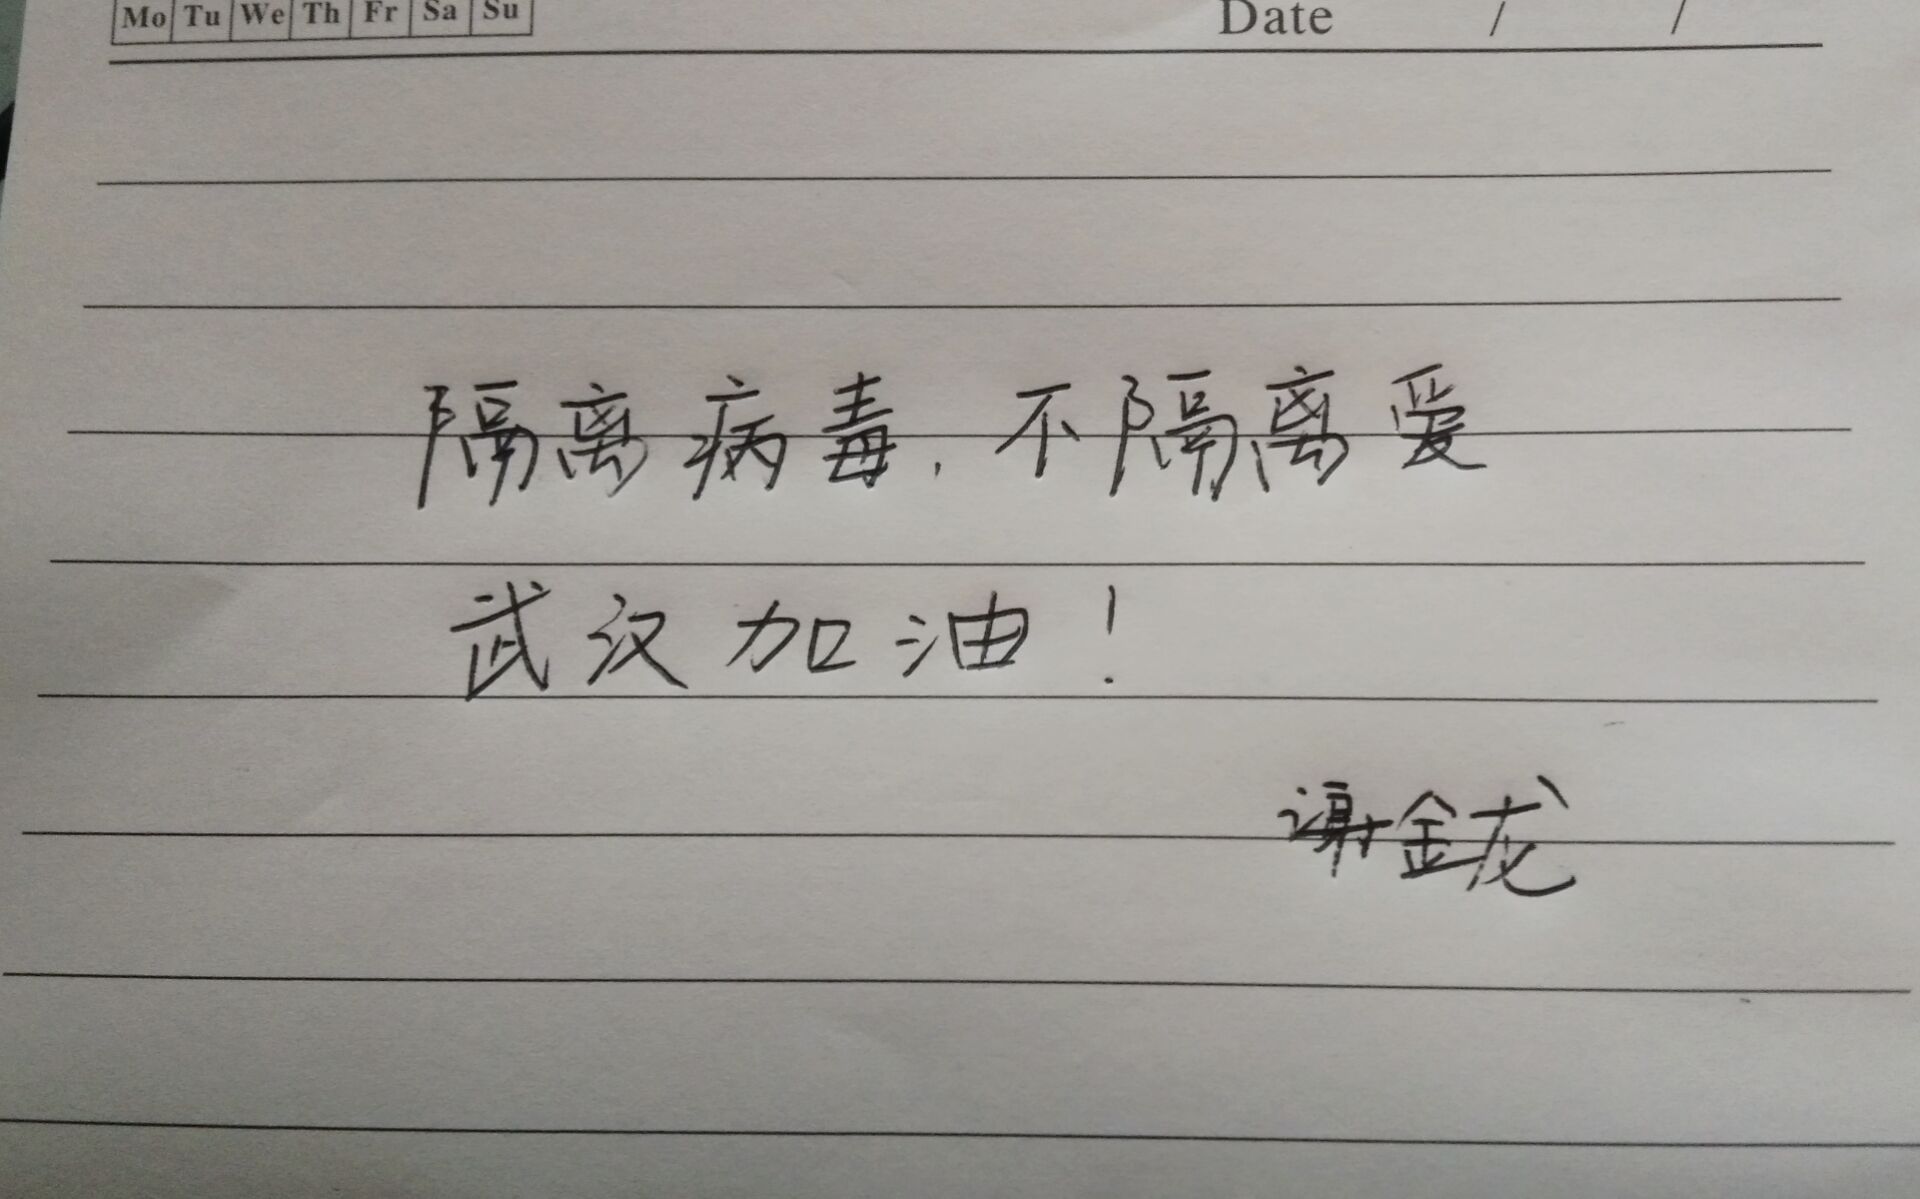 Mo Tu We Th Fr Sa Su Date / /
隔离病毒，不隔离爱
武汉加油！
谢金龙